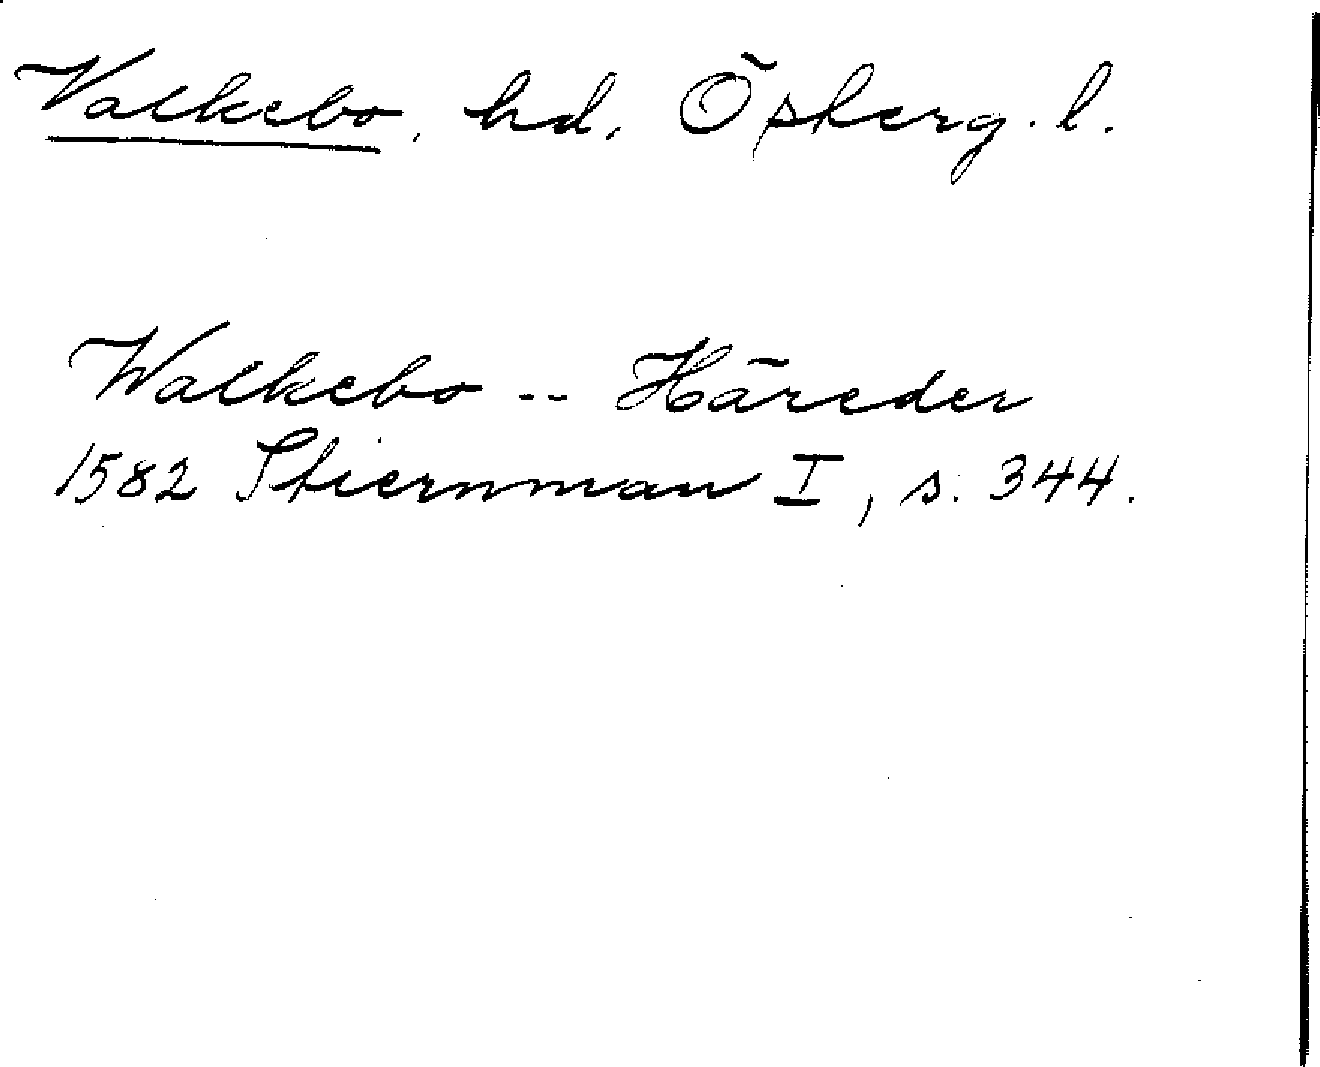 Valkebo, hd. Östergl.
Walkebo -- Häreder
1582 Stiernman I, s. 344.